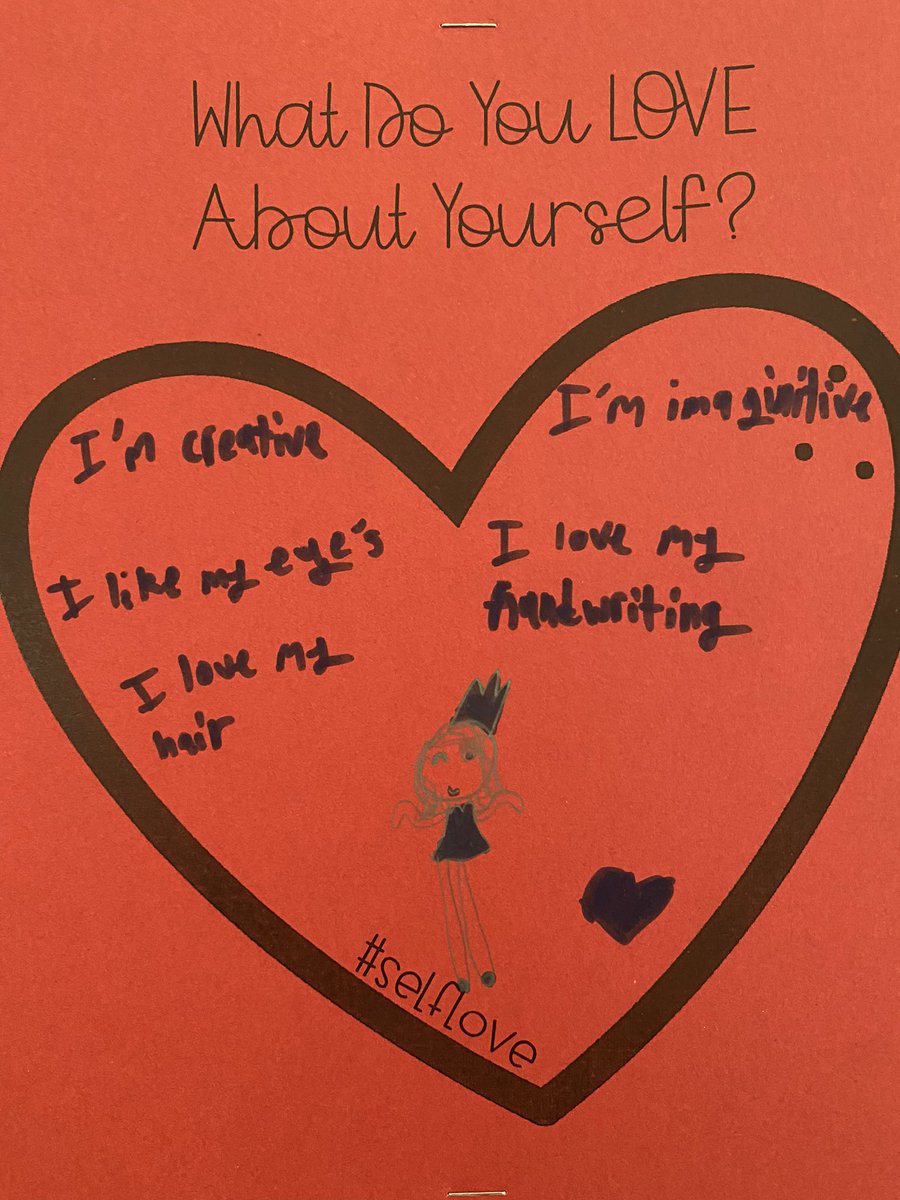 What Do You LOVE
About Yourself?
I'm creative
I'm imaginitive
I like my eye's
I love my
handwriting
I love my
hair
#selflove